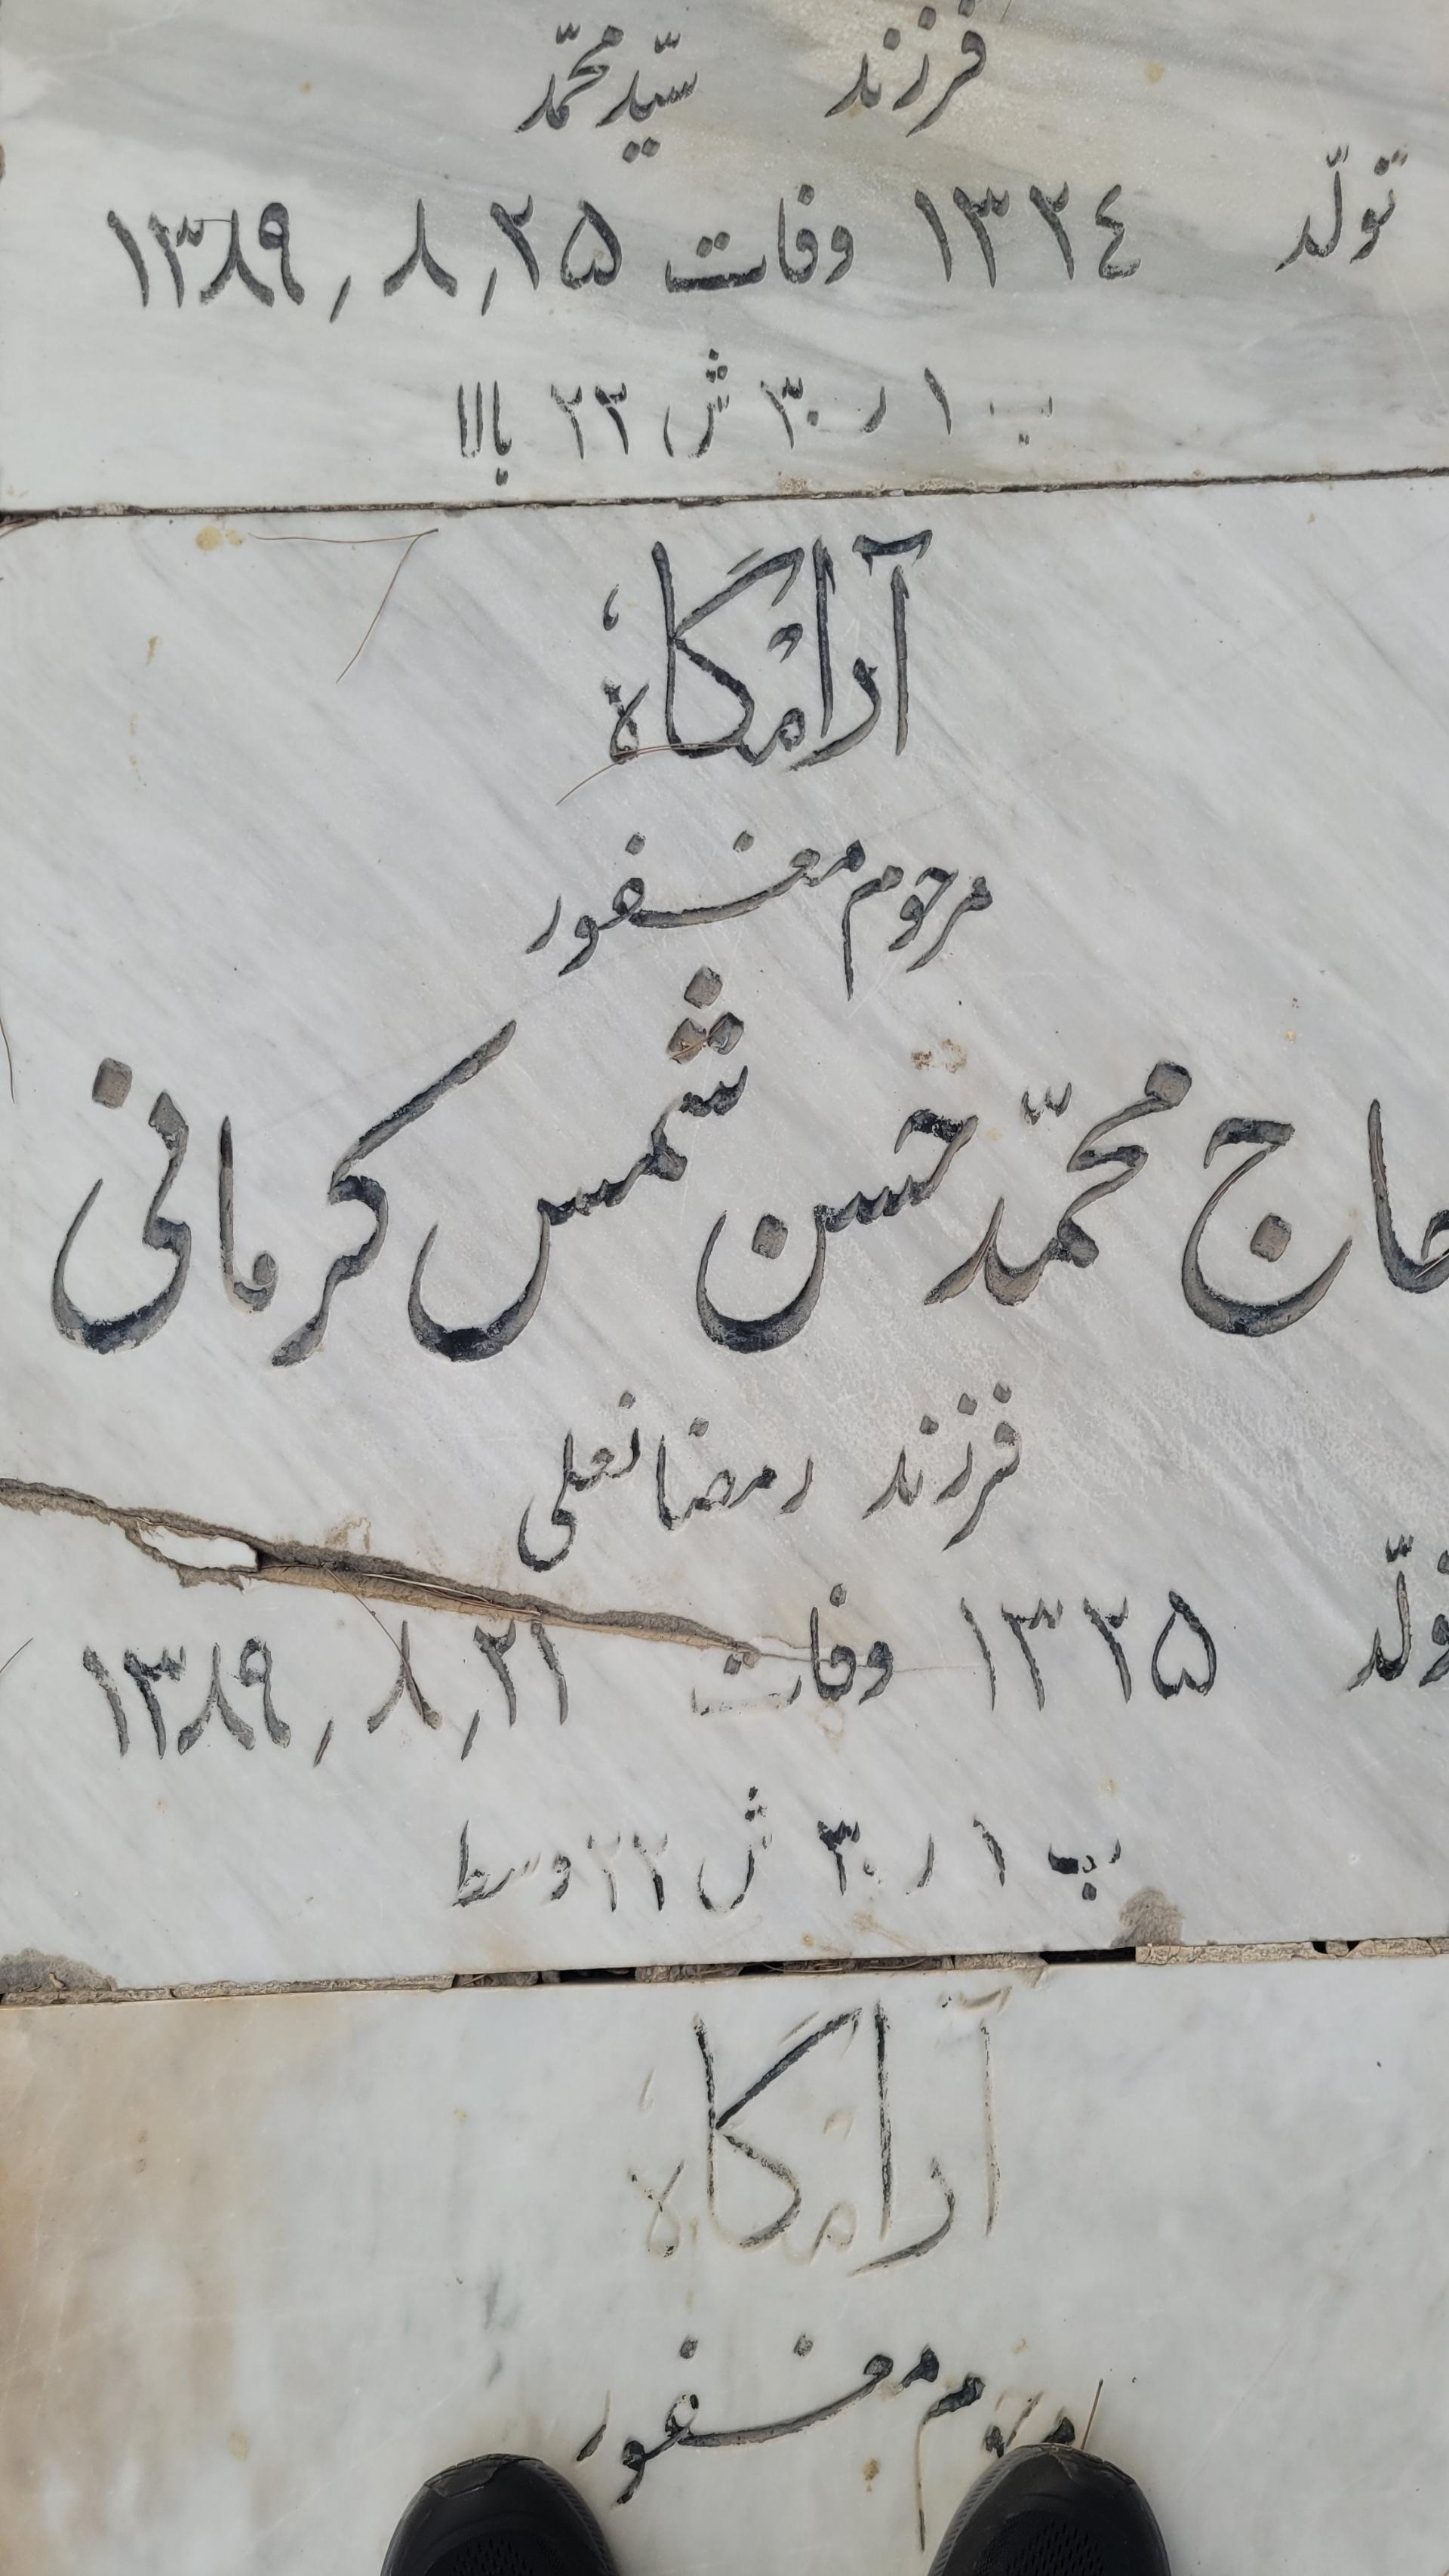 فرزند سیّد محمّد
تولّد ۱۳۲٤ وفات ۲۵٫ ۸٫ ۱۳۸۹
ب ۱ ر ۳۰ ش ۲۳ بالا
آرامگاه
مرحوم مغفور
حاج محمّد حسن شمس کرمانی
فرزند رمضانعلی
تولّد ۱۳۲۵ وفات ۲۱٫ ۸٫ ۱۳۸۹
ب ۱ ر ۳۰ ش ۲۲ وسط
آرامگاه
مرحوم مغفور